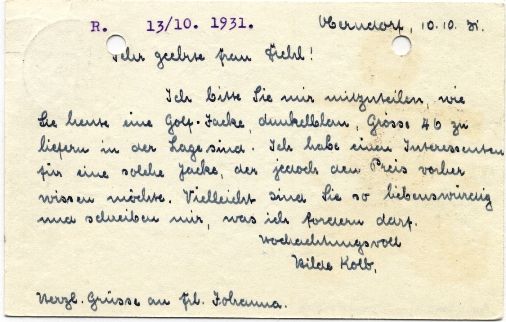 R. 13/10. 1931. Oberndorf, 10.10.31.
Sehr geehrte Frau Fichl!
Ich bitte Sie mir mitzuteilen, wie
Sie heute eine Golf-Jacke, dunkelblau, Grösse 46 zu
liefern in der Lage sind. Ich habe einen Interessenten
für eine solche Jacke, der jedoch den Preis vorher
wissen möchte. Vielleicht sind Sie so liebenswürdig
und schreiben mir, was ich fordern darf.
Hochachtungsvoll
Hilde Kolb.
Herzl. Grüsse an Frl. Johanna.